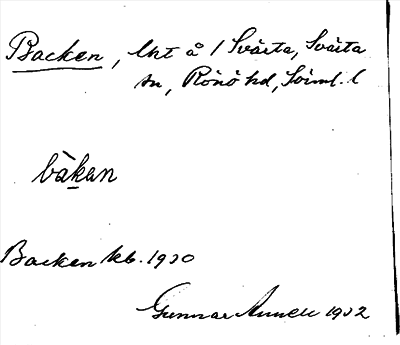 Backen, lht å / Svärta, Svärta
sn, Rönö hd, Söiml. l
bàkan
Backen kb. 1930
Gunnar 1932